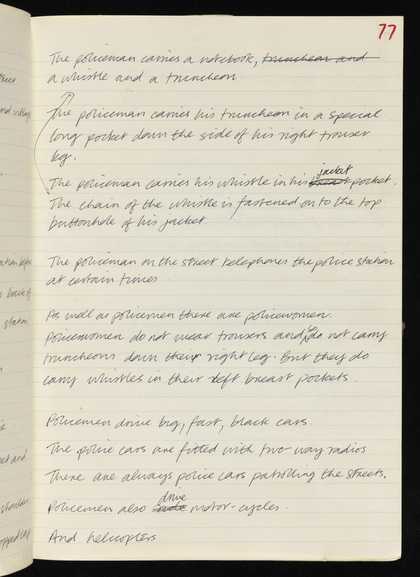 77
The policeman carries a notebook, truncheon and
a whistle and a truncheon
The policeman carries his truncheon in a special
long pocket down the side of his right trouser
leg.
jacket
The policeman carries his whistle in his breast pocket.
The chain of the whistle is fastened on to the top
buttonhole of his jacket
The policeman on the street telephones the police station
at certain times
As well as policemen there are policewomen.
Policewomen do not wear trousers and do not carry
truncheons down their right leg. But they do
carry whistles in their left breast pockets.
Policemen drive big, fast, black cars.
The police cars are fitted with two-way radios
There are always police cars patrolling the streets.
drive
Policemen also motor-cycles.
And helicopters
station